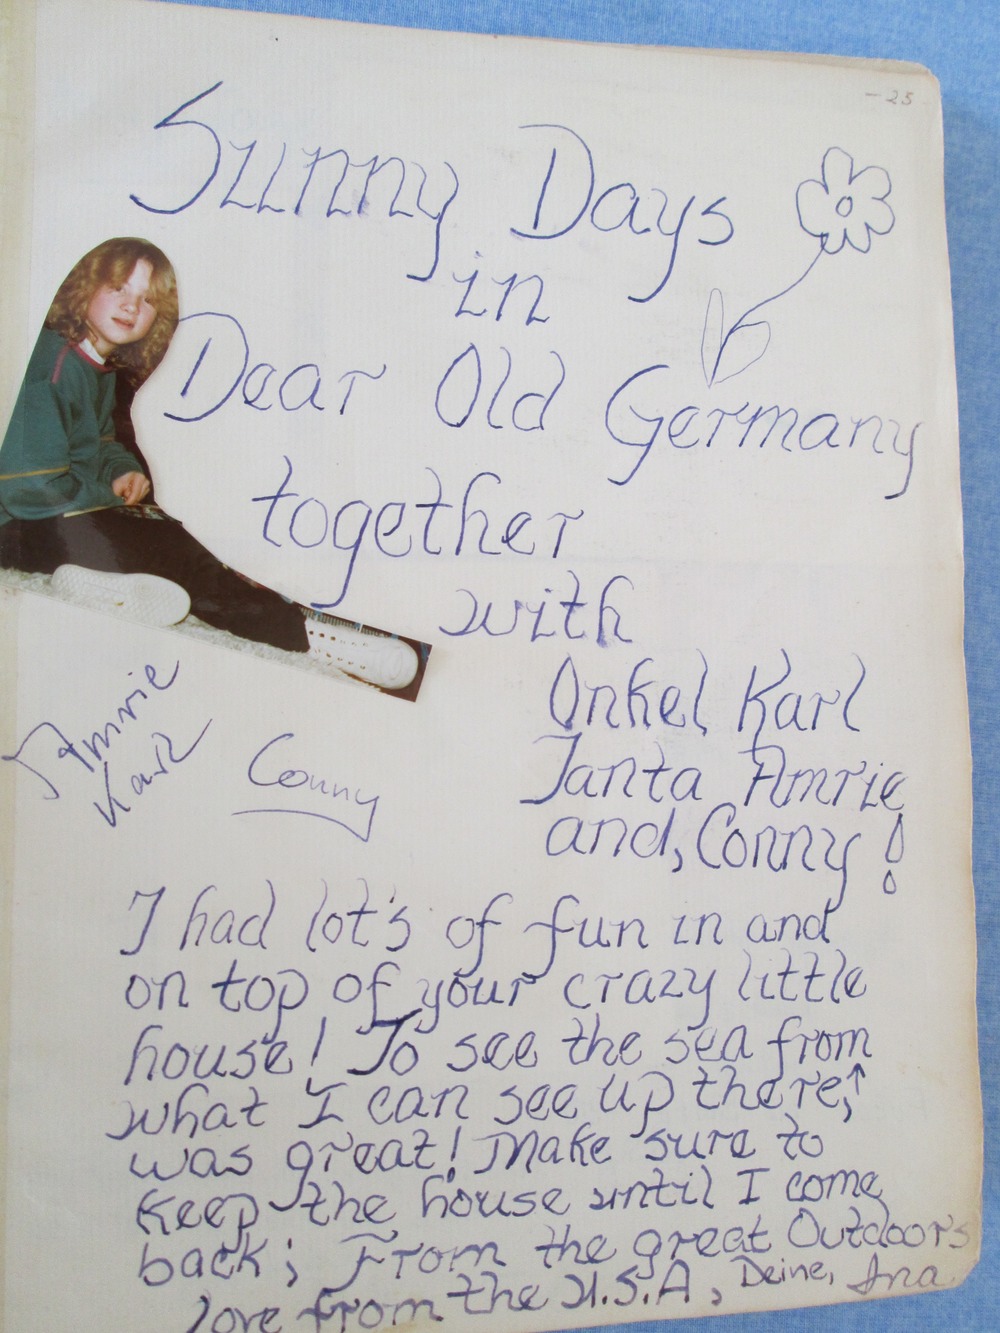 - 25
Sunny Days
in
Dear Old Germany
together
with
Onkel Karl
Tanta Amrie
and, Conny!
Amrie
Karl
Conny
I had lot's of fun in and
on top of your crazy little
house! To see the sea from
what I can see up there,↑
was great! Make sure to
keep the house until I come
back; From the great Outdoors
love from the U.S.A, Deine, Ina